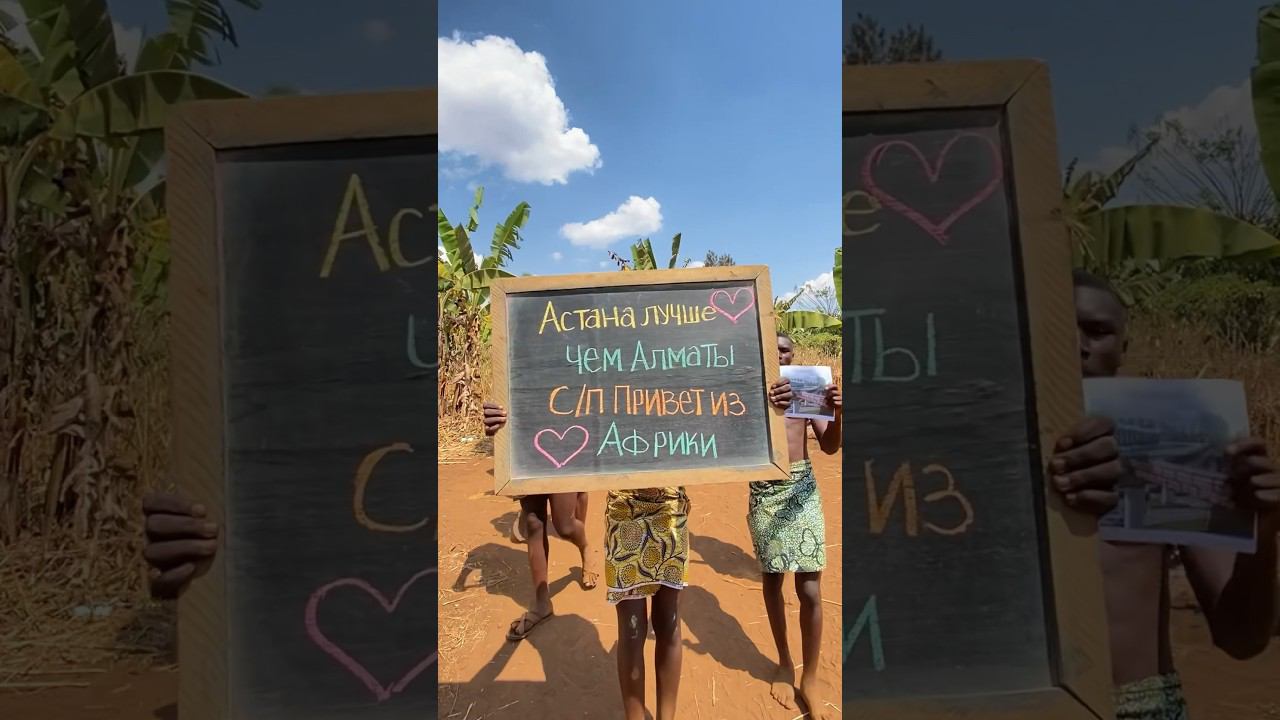 Астана лучше
чем Алматы
С/П Привет из
Африки